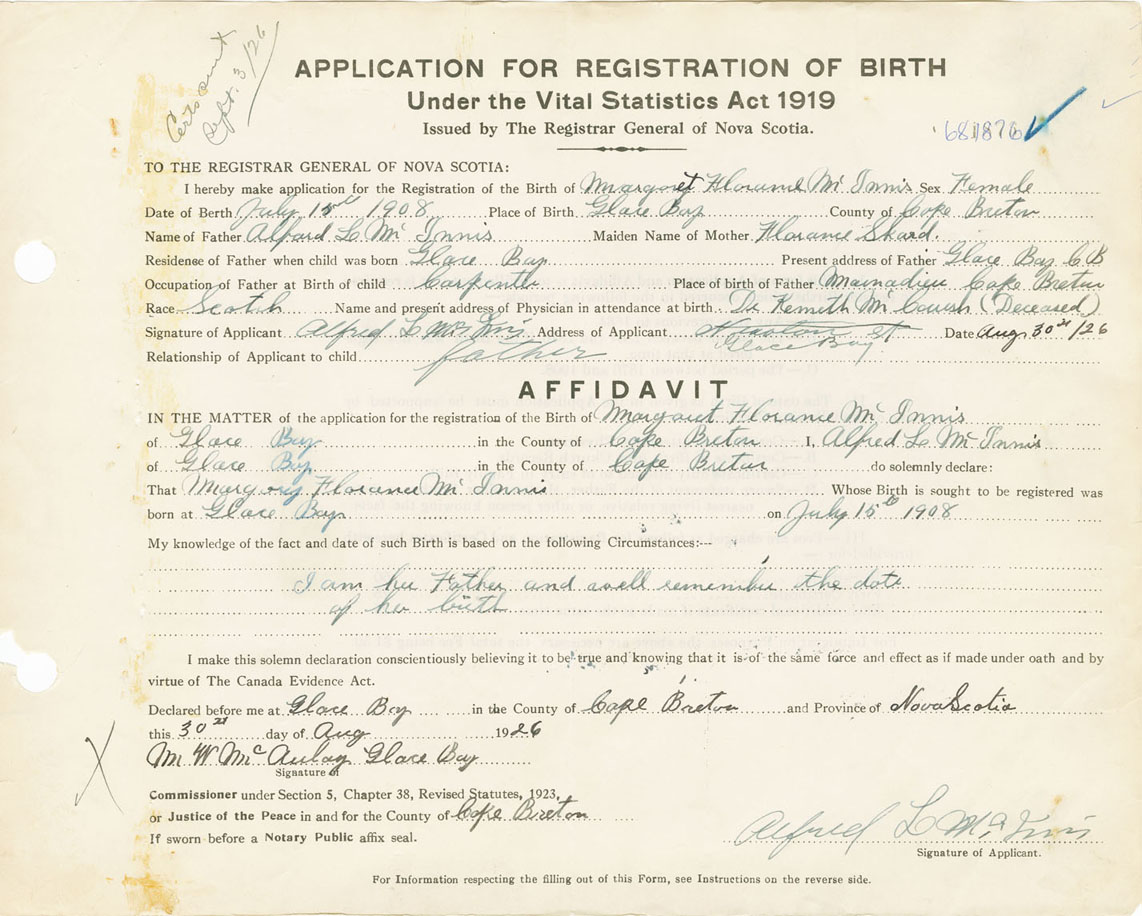 Certs sent
Sept. 3/26
APPLICATION FOR REGISTRATION OF BIRTH
Under the Vital Statistics Act 1919
Issued by The Registrar General of Nova Scotia.
681876
TO THE REGISTRAR GENERAL OF NOVA SCOTIA:
I hereby make application for the Registration of the Birth of Margaret Florance Mc Innis Sex Female
Date of Berth July 15th 1908 Place of Birth Glace Bay County of Cape Breton
Name of Father Alfard L Mc Innis Maiden Name of Mother Florance Shard.
Residense of Father when child was born Glace Bay Present address of Father Glace Bay C B
Occupation of Father at Birth of child Carpenter Place of birth of Father Mainadieu Cape Breton
Race Scotch Name and present address of Physician in attendance at birth Dr Kenneth Mc (Deceased)
Signature of Applicant Alfred L McInnis Address of Applicant St Date Aug. 30st/26
Glace Bay
Relationship of Applicant to child father
AFFIDAVIT
IN THE MATTER of the application for the registration of the Birth of Margaret Florance Mc Innis
of Glace Bay in the County of Cape Breton I, Alfred L Mc Innis
of Glace Bay in the County of Cape Breton do solemnly declare:
That Margory Florance Mc Innis Whose Birth is sought to be registered was
born at Glace Bay on July 15th 1908
My knowledge of the fact and date of such Birth is based on the following Circumstances:--
I am her Father and well remember the date
of her birth
I make this solemn declaration conscientiously believing it to be true and knowing that it is of the same force and effect as if made under oath and by
virtue of The Canada Evidence Act.
Declared before me at Glace Bay in the County of Cape Breton and Province of Nova Scotia
this 30st day of Aug 1926
M W McAulay Glace Bay
Signature of
Commissioner under Section 5, Chapter 38, Revised Statutes, 1923,
or Justice of the Peace in and for the County of Cape Breton
If sworn before a Notary Public affix seal.
Alfred L McInnis
Signature of Applicant.
For Information respecting the filling out of this Form, see Instructions on the reverse side.